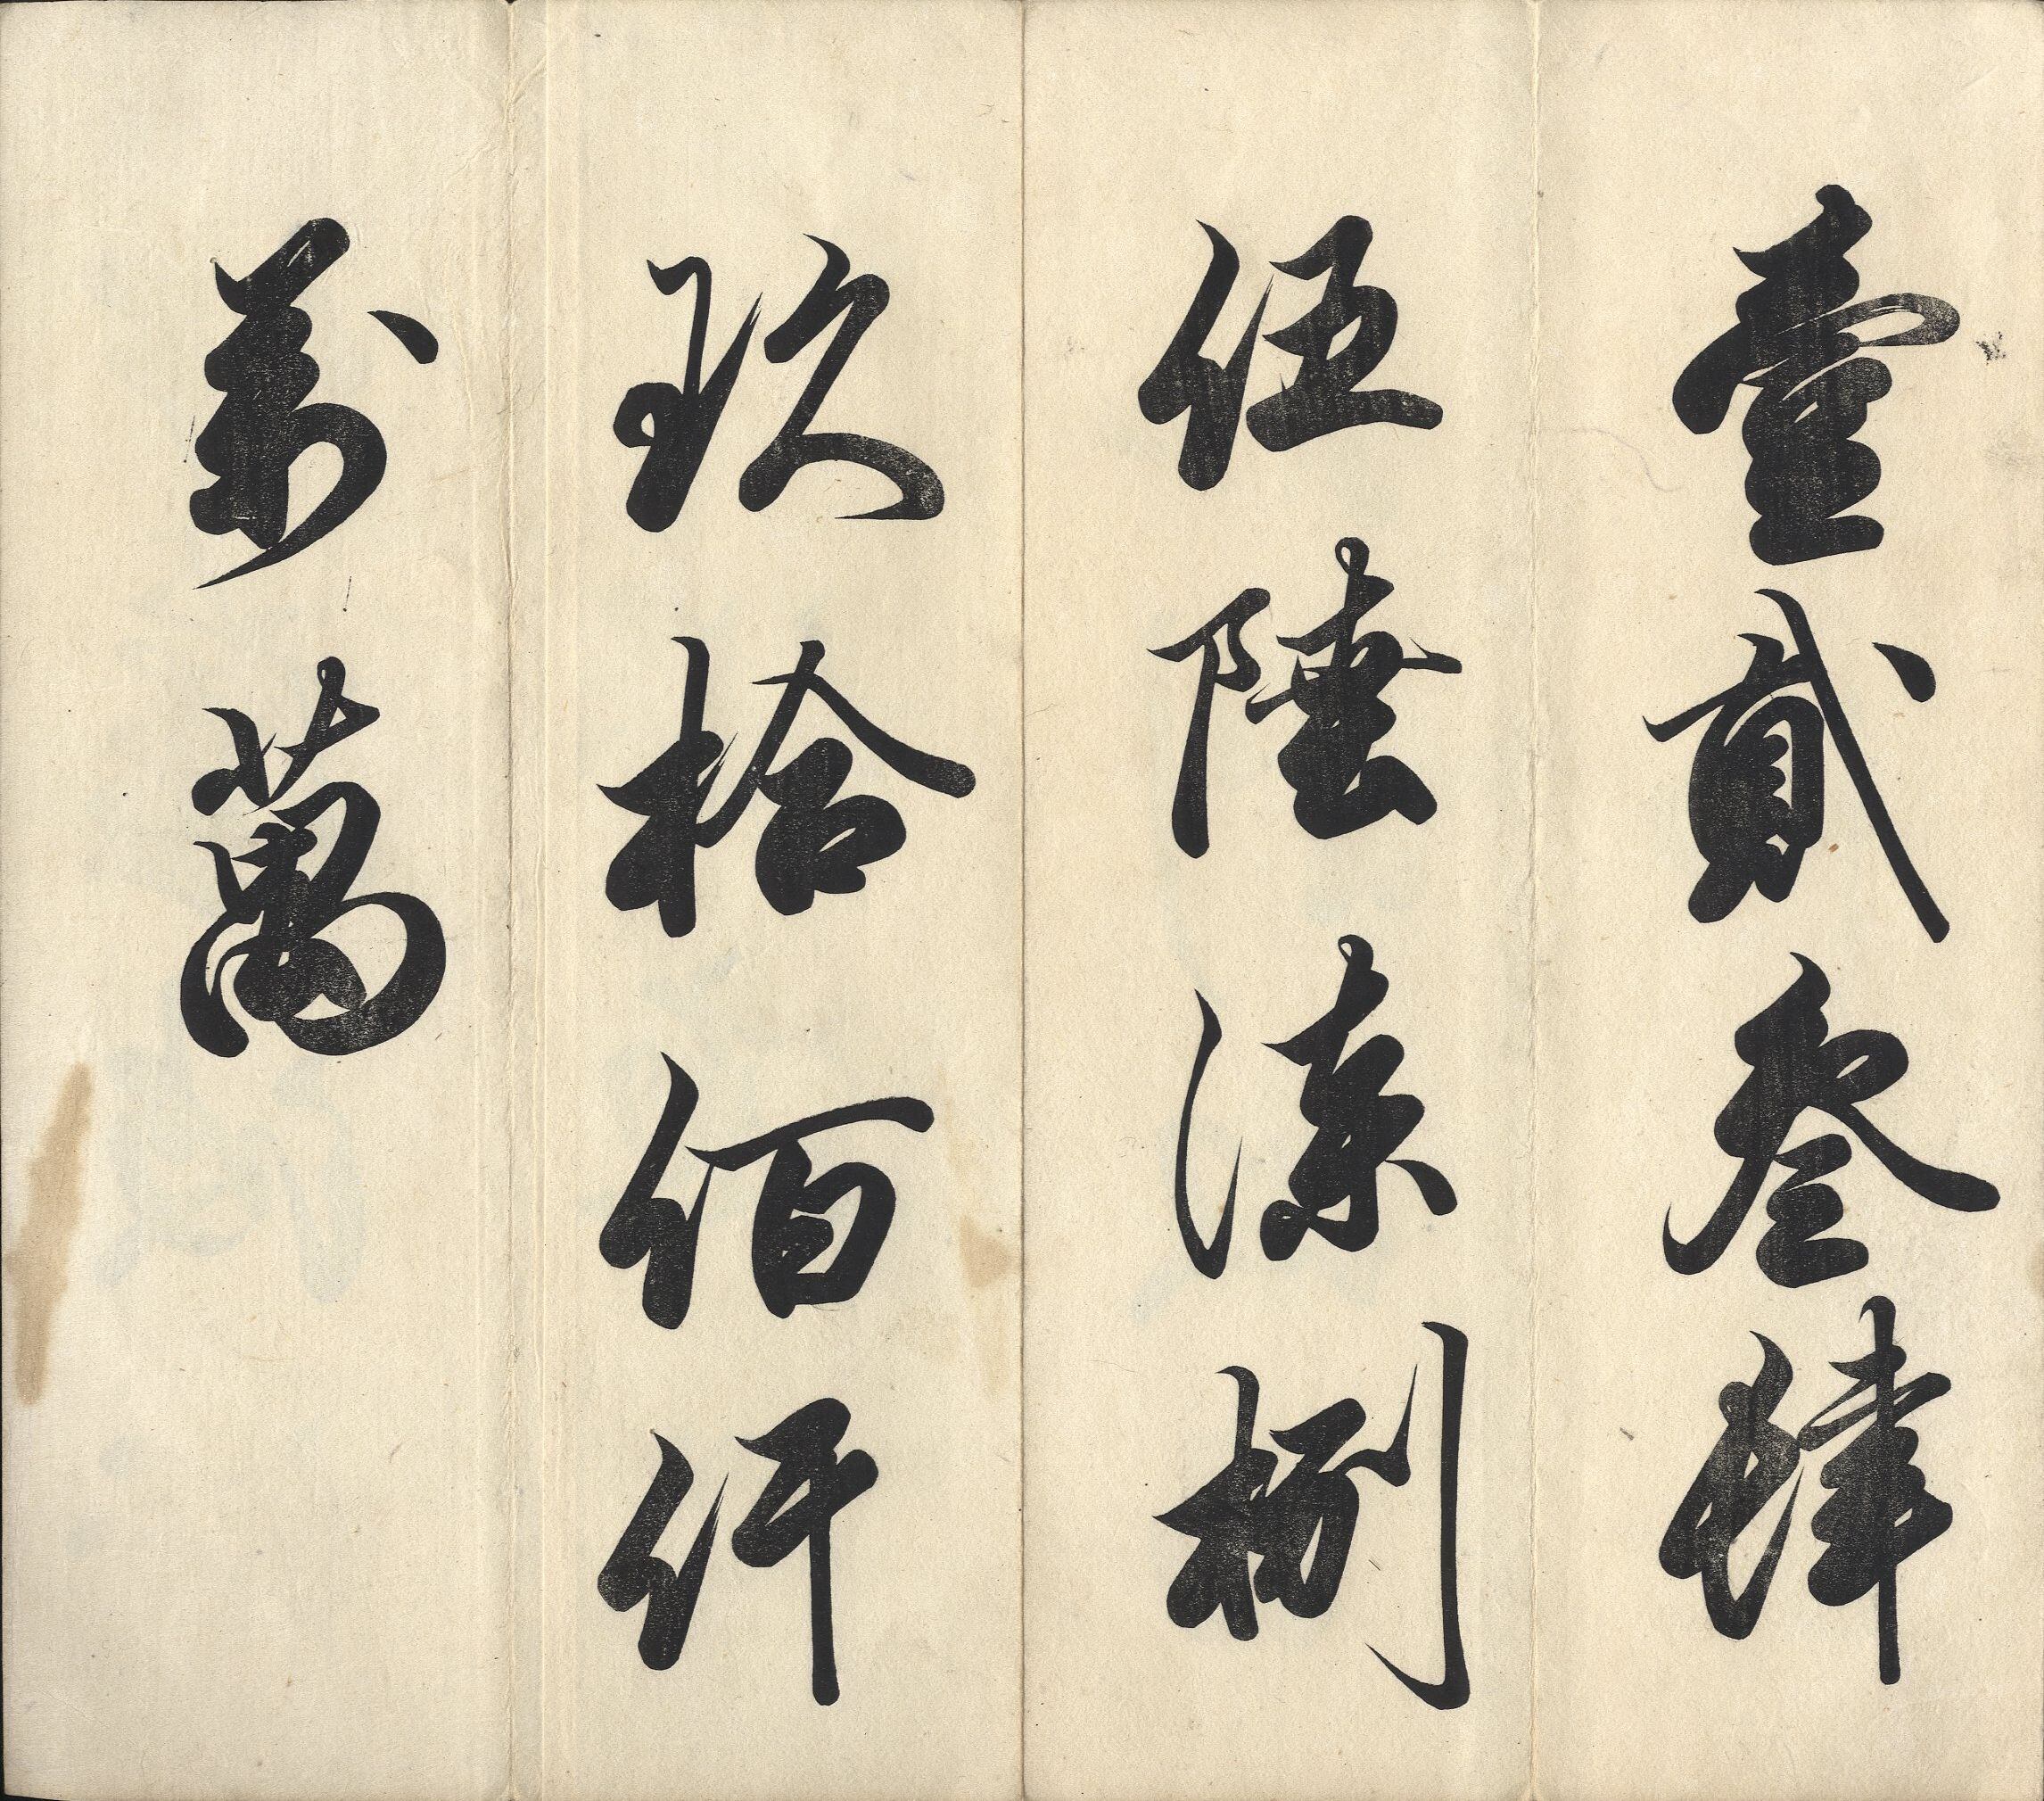 壹貳叁肆
伍陸漆捌
玖拾佰仟
萬萬